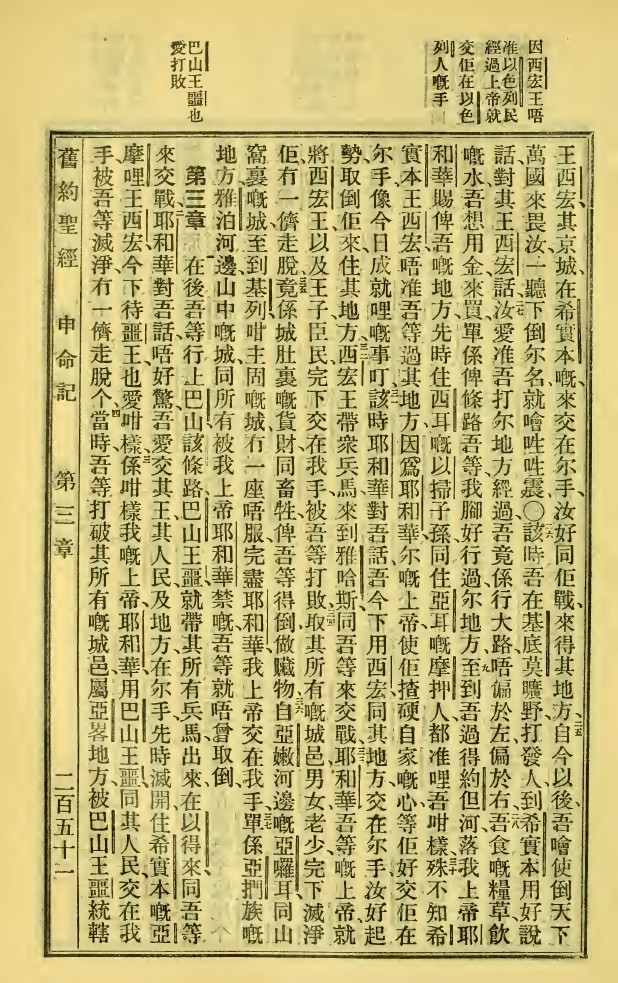 因西宏王唔
准以色列民
經過上帝就
交佢在以色
列人嘅手
巴山王噩也
愛打敗
王西宏其京城在希實本嘅來交在尔手汝好同佢戰來得其地方自今以後吾噲使倒天下
萬國來畏汝一聽下倒尔名就噲呠呠震〇該時吾在基底莫曠野打發人到希實本用好說
話對其王西宏話汝愛准吾打尔地方經過吾竟係行大路唔偏於左偏於右吾食嘅糧草飲
嘅水吾想用金來買單係俾條路吾等我腳好行過尔地方至到吾過得約但河落我上帝耶
和華賜俾吾嘅地方先時住西耳嘅以掃子孫同住亞耳嘅摩押人都准哩吾咁樣殊不知希
實本王西宏唔准吾等過其地方因爲耶和華尔嘅上帝使佢揸硬自家嘅心等佢好交佢在
尔手像今日成就哩嘅事叮該時耶和華對吾話吾今下用西宏同其地方交在尔手汝好起
勢取倒佢來住其地方西宏王帶衆兵馬來到雅哈斯同吾等來交戰耶和華吾等嘅上帝就
將西宏王以及王子臣民完下交在我手被吾等打敗取其所有嘅城邑男女老少完下滅淨
佢有一儕走脫竟係城肚裏嘅貨財同畜牲俾吾等得倒做贜物自亞嫩河邊嘅亞囉耳同山
窩裏嘅城至到基列咁主固嘅城冇一座唔服完盡耶和華我上帝交在我手單係亞捫族嘅
地方雅泊河邊山中嘅城同所有被我上帝耶和華禁嘅吾等就唔曾取倒
第三章 在後吾等行上巴山該條路巴山王噩就帶其所有兵馬出來在以得來同吾等
來交戰耶和華對吾話唔好驚吾愛交其王其人民及地方在尔手先時滅開住希實本嘅亞
摩哩王西宏今下待噩王也愛咁樣係咁樣我嘅上帝耶和華用巴山王噩同其人民交在我
手被吾等滅淨冇一儕走脫个當時吾等打破其所有嘅城邑屬亞畧地方被巴山王噩統轄
舊約聖經 申命記 第三章 二百五十一